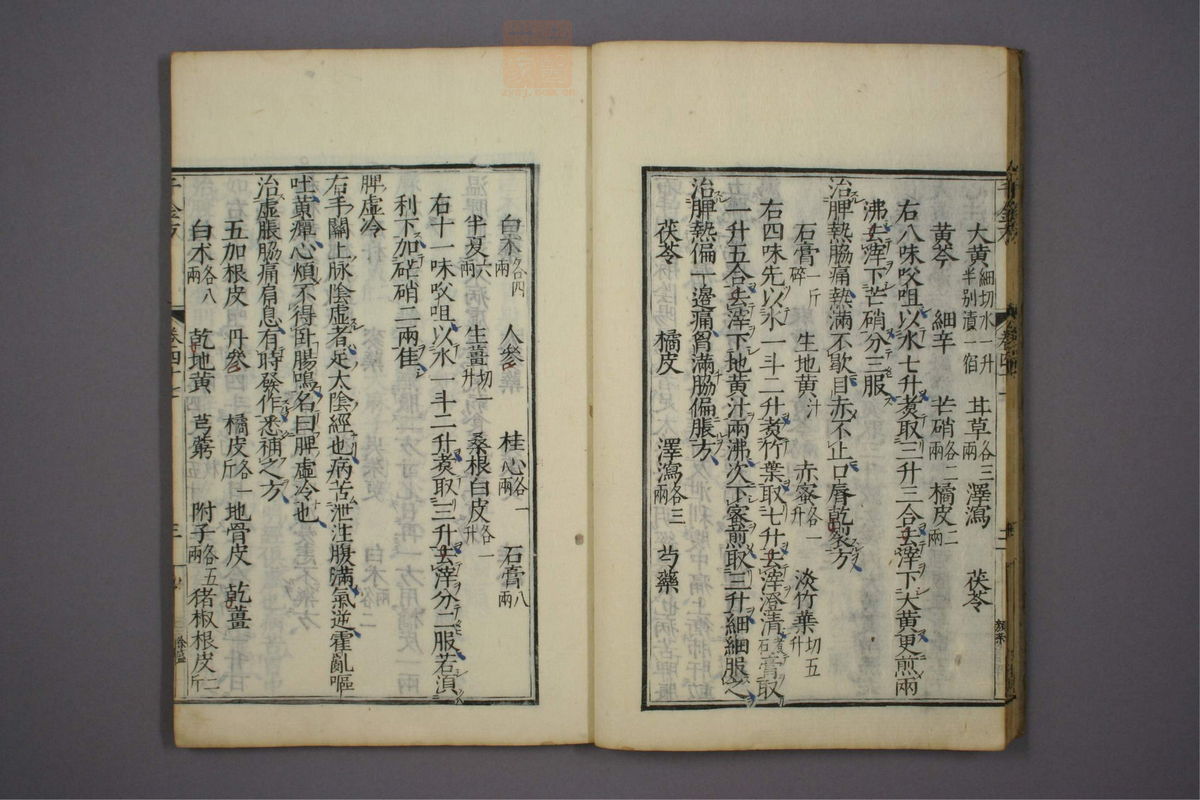 大黄細切水一升半别漬一宿 甘草各三兩 澤瀉 茯苓
黄芩 細辛 芒硝各二兩 橘皮二兩
右八味㕮咀以水七升煑取三升三合去滓下大黄更煎兩
沸去滓下芒硝分三服
治脾熱脇痛熱滿不歇目赤不止口脣乾裂方
石膏一斤碎 生地黄汁 赤蜜各一升 淡竹葉切五升
右四味先以水一斗二升煑竹葉取七升去滓澄清煑石膏取
一升五合去滓下地黄汁兩沸次下蜜煎取三升細細服之
治脾熱偏一邊痛胷滿脇偏脹方
茯苓 橘皮 澤瀉各三兩 芍藥
白术各四兩 人參 桂心各一兩 石膏八兩
半夏六兩 生薑切一升 桑根白皮各一升
右十一味㕮咀以水一斗二升煑取三升去滓分二服若須
利下加芒硝二兩佳
脾虚冷
右手關上脉陰虚者足太陰經也病苦泄注腹滿氣逆霍亂嘔
吐黄癉心煩不得卧腸鳴名曰脾虚冷也
治虚脹脇痛肩息有時發作悉補之方
五加根皮 丹參 橘皮各一斤 地骨皮 乾薑
白术各八兩 乾地黄 芎藭 附子各五兩 猪椒根皮二斤
千金方 卷四十七